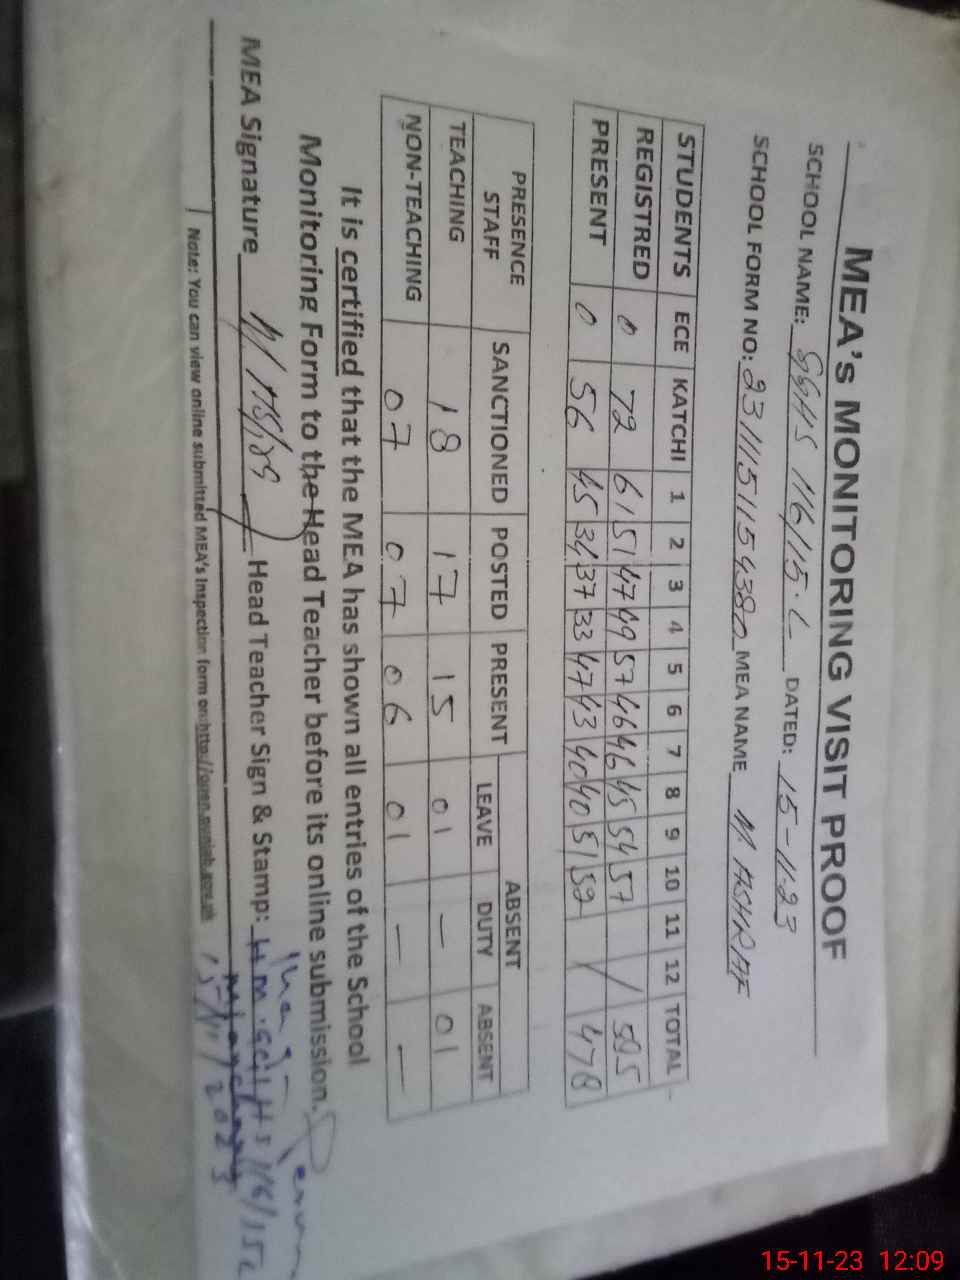 MEA's MONITORING VISIT PROOF
SCHOOL NAME: GGHS 116/15.L DATED: 15-11-23
SCHOOL FORM NO: 2311151154380 MEA NAME M. ASHRAF
STUDENTS ECE KATCHI 1 2 3 4 5 6 7 8 9 10 11 12 TOTAL
REGISTRED 0 72 61 51 47 49 57 46 46 45 54 57 / 595
PRESENT 0 56 45 34 37 33 47 43 40 40 51 52 / 478
PRESENCE STAFF SANCTIONED POSTED PRESENT ABSENT
LEAVE DUTY ABSENT
TEACHING 18 17 15 01 — 01
NON-TEACHING 07 07 06 01 — —
It is certified that the MEA has shown all entries of the School
Monitoring Form to the Head Teacher before its online submission.
MEA Signature Head Teacher Sign & Stamp: H.M. GGHS 116/15L
15/11/2023
Note: You can view online submitted MEA's Inspection form on: http://open.punjab.gov.pk
15-11-23 12:09